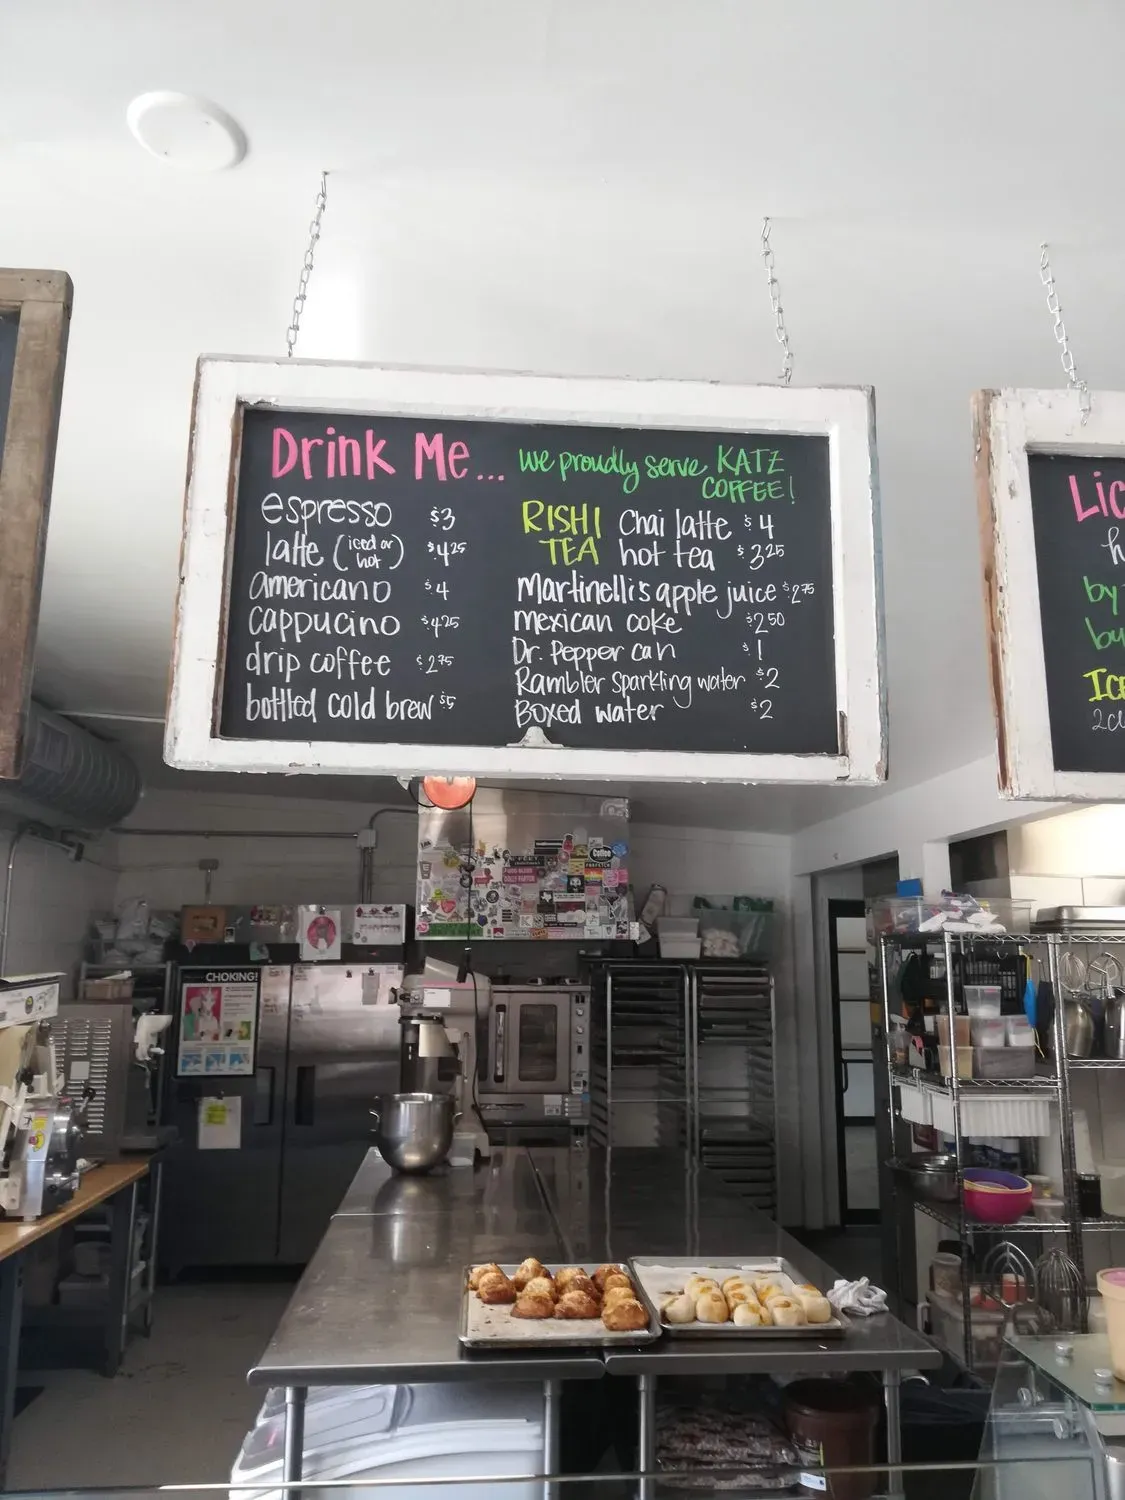 Drink Me...
espresso $3
latte (iced or hot) $4.25
americano $4
cappucino $4.25
drip coffee $2.75
bottled cold brew $5
we proudly serve KATZ
COFFEE!
RISHI
TEA
Chai latte $4
hot tea $3.25
Martinelli's apple juice $2.75
mexican coke $2.50
Dr. Pepper can $1
Rambler sparkling water $2
Boxed water $2
Lic
h
by
bu
ICE
CHOKING!
Coffee